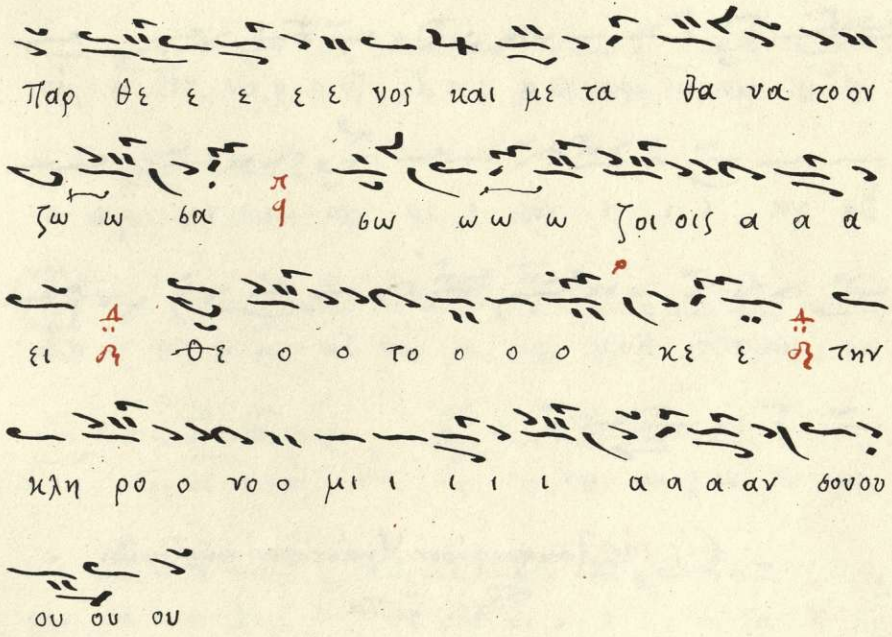 Παρ θε ε ε ε ε νος και με τα θα να το ον
ζω ω σα π q σω ω ω ω ζοι οις α α α
ει Δ θε ο ο το ο ο ο κε ε Δ την
κλη ρο ο νο ο μι ι ι ι ι α α α αν σου ου
ου ου ου